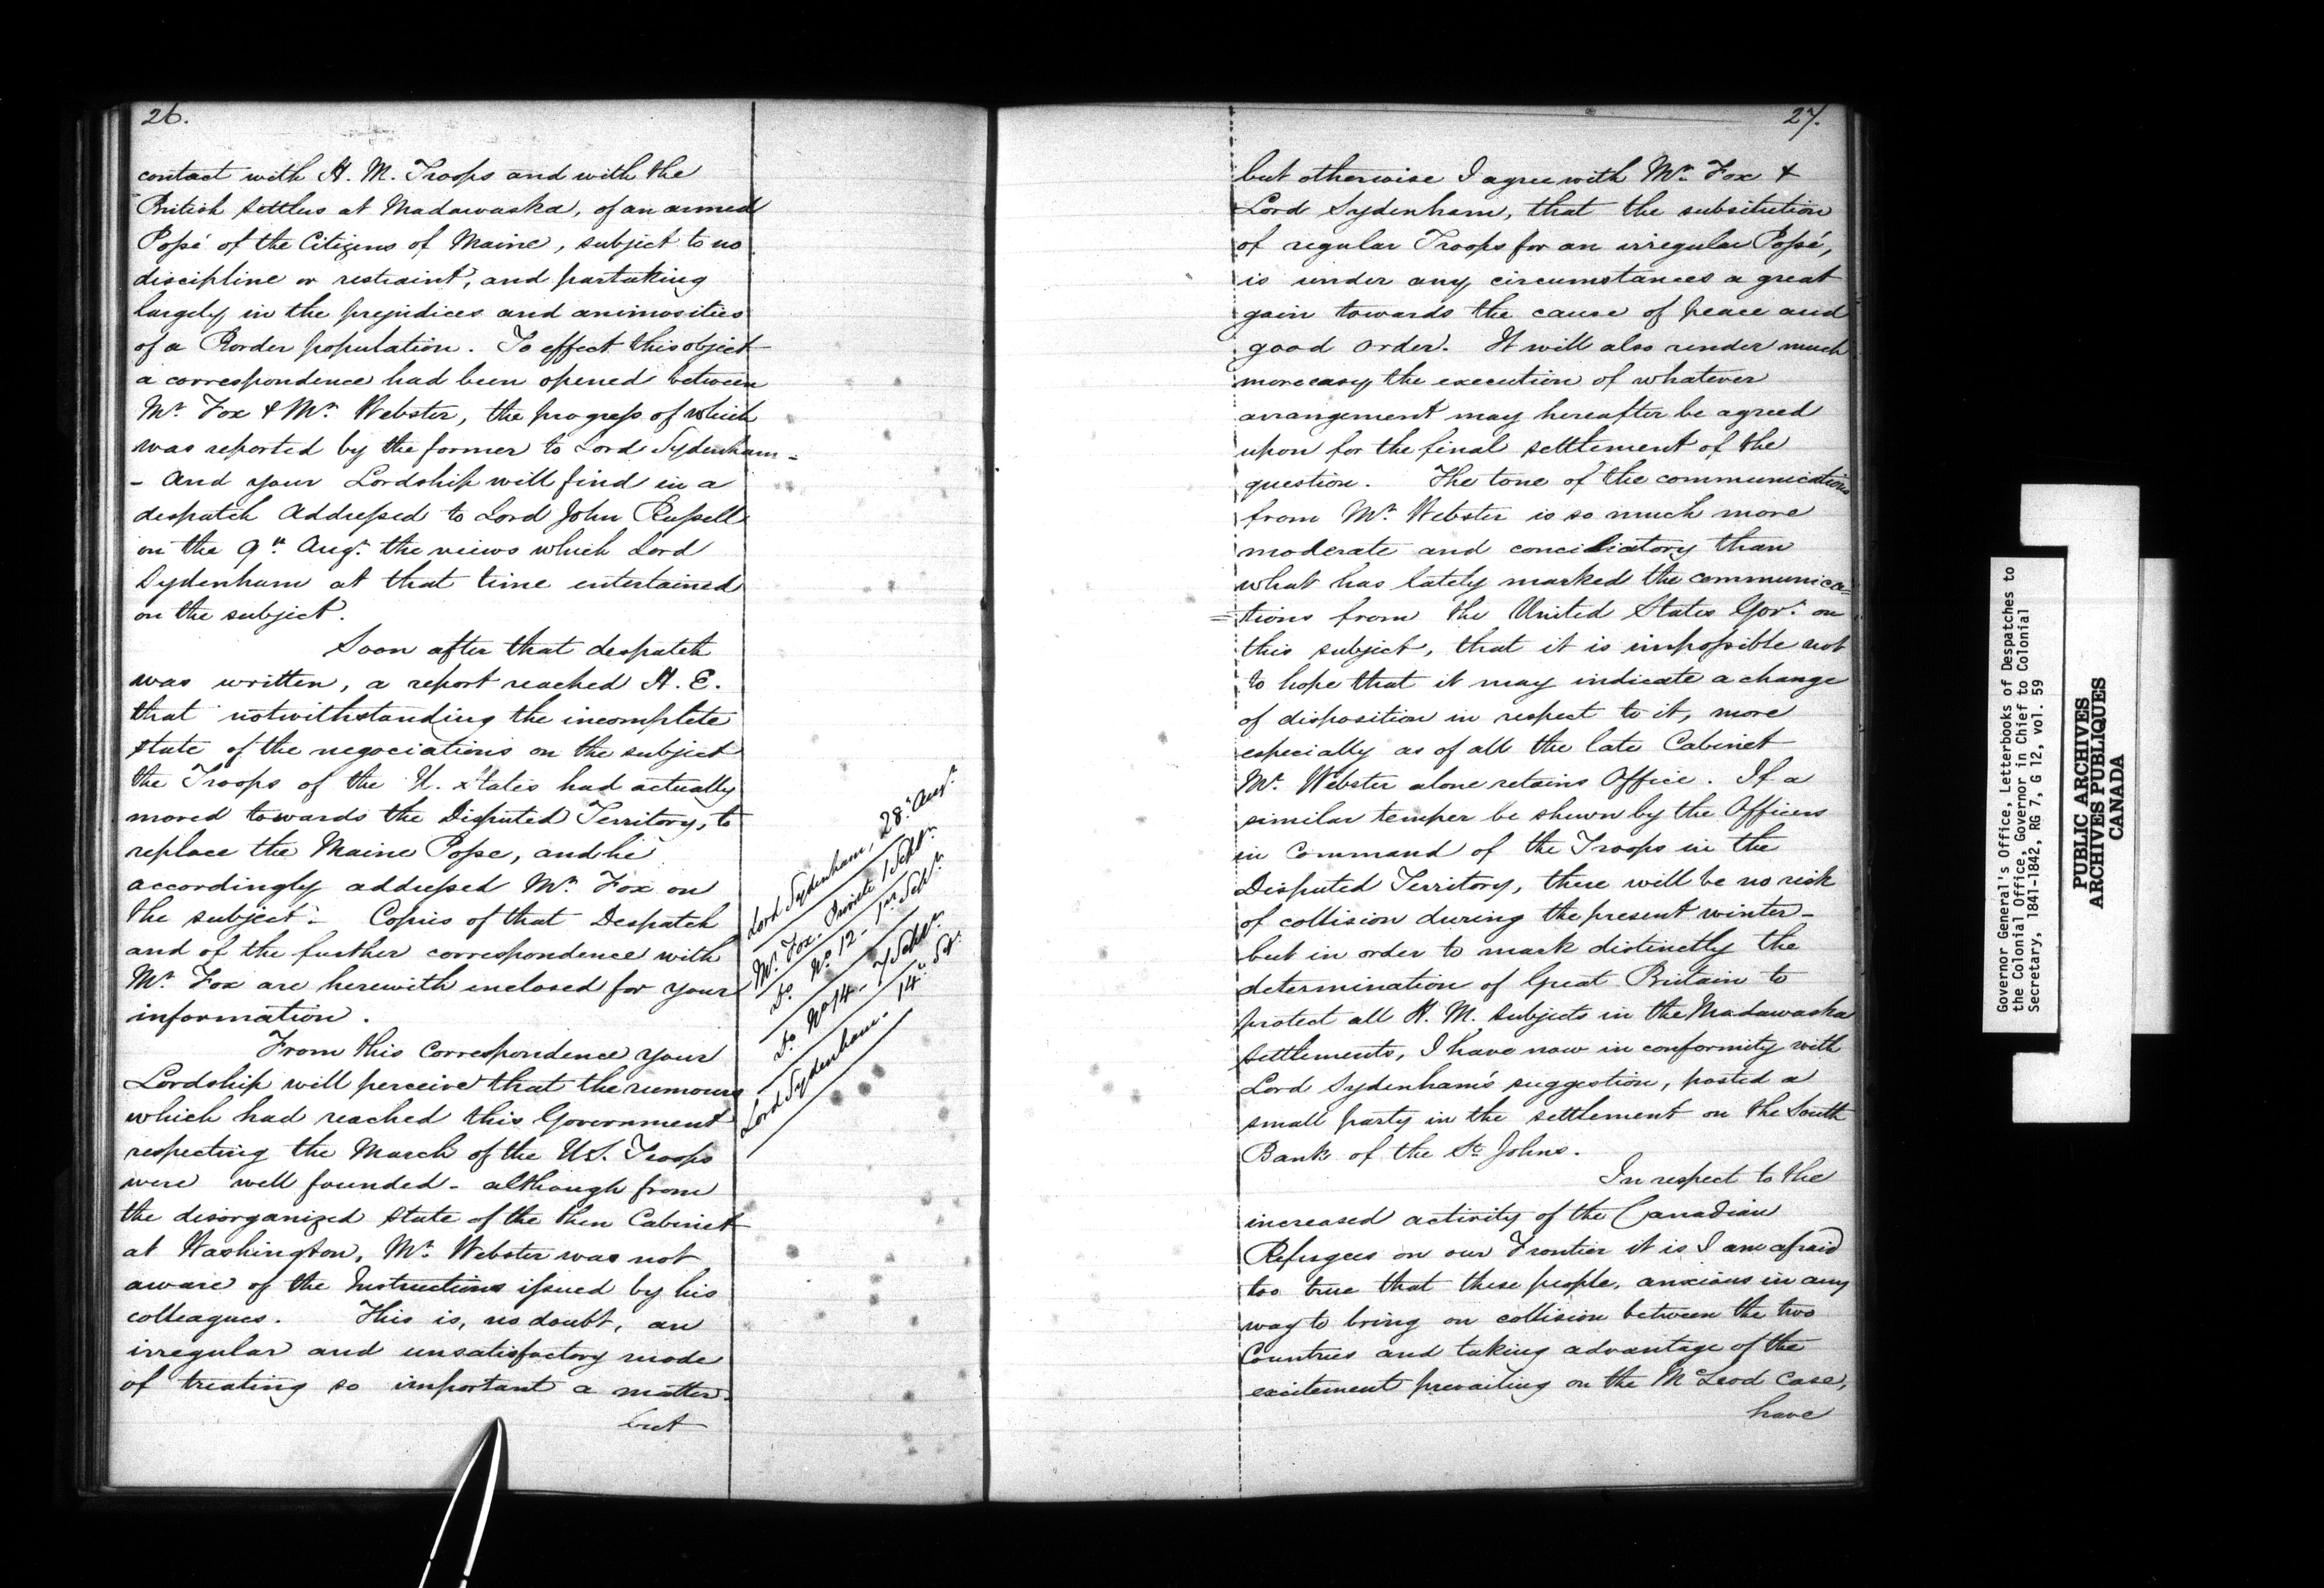 26.
contact with H. M. Troops and with the
British Settlers at Madawaska, of an armed
Possé of the Citizens of Maine, subject to no
discipline or restraint, and partaking
largely in the prejudices and animosities
of a Border population. To effect this object
a correspondence had been opened between
Mr. Fox & Mr. Webster, the progress of which
was reported by the former to Lord Sydenham -
- And your Lordship will find in a
despatch Addressed to Lord John Russell
on the 9th Augt. the views which Lord
Sydenham at that time entertained
on the subject.
Soon after that despatch
was written, a report reached H. E.
that notwithstanding the incomplete
state of the negociations on the subject
the Troops of the U. States had actually
moved towards the Disputed Territory, to
replace the Maine Posse, and he
accordingly addressed Mr. Fox on
the subject. Copies of that Despatch
and of the further correspondence with
Mr. Fox are herewith inclosed for your
information.
Lord Sydenham, 28th Augt.
Mr. Fox. Private 1 Septr.
Do. No. 12 - 1st Septr.
Do. No. 14 - 7 Septr.
Lord Sydenham. 14th Sepr.
From this Correspondence your
Lordship will perceive that the rumours
which had reached this Government
respecting the March of the U.S. Troops
were well founded - although from
the disorganized state of the then Cabinet
at Washington, Mr. Webster was not
aware of the Instructions issued by his
colleagues. This is, no doubt, an
irregular and unsatisfactory mode
of treating so important a matter.
but
27.
but otherwise I agree with Mr. Fox &
Lord Sydenham, that the subsitution
of regular Troops for an irregular Possé,
is under any circumstances a great
gain towards the cause of peace and
good order. It will also render much
more easy the execution of whatever
arrangement may hereafter be agreed
upon for the final settlement of the
question. The tone of the communications
from Mr. Webster is so much more
moderate and conciliatory than
what has lately marked the communica=
=tions from the United States Govt. on
this subject, that it is impossible not
to hope that it may indicate a change
of disposition in respect to it, more
especially as of all the late Cabinet
Mr. Webster alone retains Office. If a
similar temper be shewn by the Officers
in Command of the Troops in the
Disputed Territory, there will be no risk
of collision during the present winter -
but in order to mark distinctly the
determination of Great Britain to
protect all H. M. subjects in the Madawaska
settlements, I have now in conformity with
Lord Sydenham's suggestion, posted a
small party in the settlement on the South
Bank of the St. Johns.
In respect to the
increased activity of the Canadian
Refugees on our Frontier it is I am afraid
too true that these people, anxious in any
way to bring on collision between the two
Countries and taking advantage of the
excitement prevailing on the McLeod Case,
have
Governor General's Office, Letterbooks of Despatches to
the Colonial Office, Governor in Chief to Colonial
Secretary, 1841-1842, RG 7, G 12, vol. 59
PUBLIC ARCHIVES
ARCHIVES PUBLIQUES
CANADA